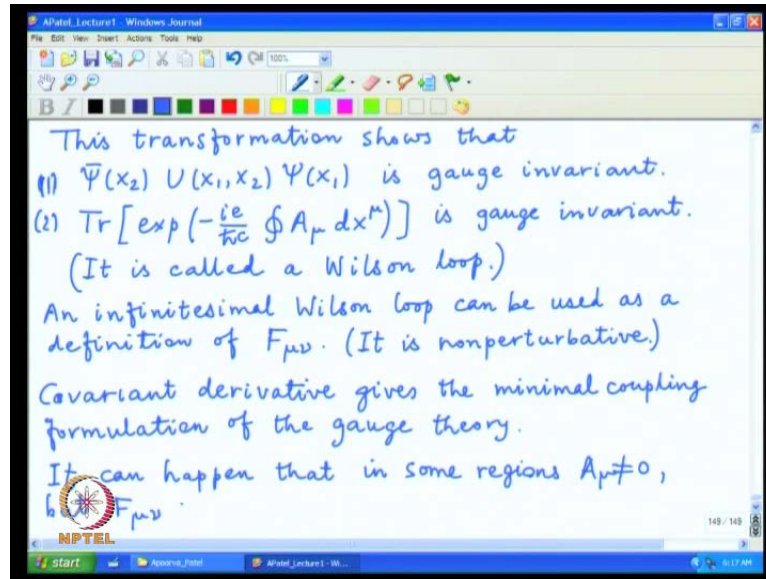 APatel_Lecture1 - Windows Journal
File Edit View Insert Actions Tools Help
100%
B I
This transformation shows that
(1) Ψ̄(x₂) U(x₁,x₂) Ψ(x₁) is gauge invariant.
(2) Tr [exp(-ie/ħc ∮ A_μ dx^μ)] is gauge invariant.
(It is called a Wilson loop.)
An infinitesimal Wilson loop can be used as a
definition of F_μν. (It is nonperturbative.)
Covariant derivative gives the minimal coupling
formulation of the gauge theory.
It can happen that in some regions A_μ≠0,
F_μν
NPTEL
149 / 149
start
Apoorva_Patel
APatel_Lecture1 - Wi...
6:17 AM